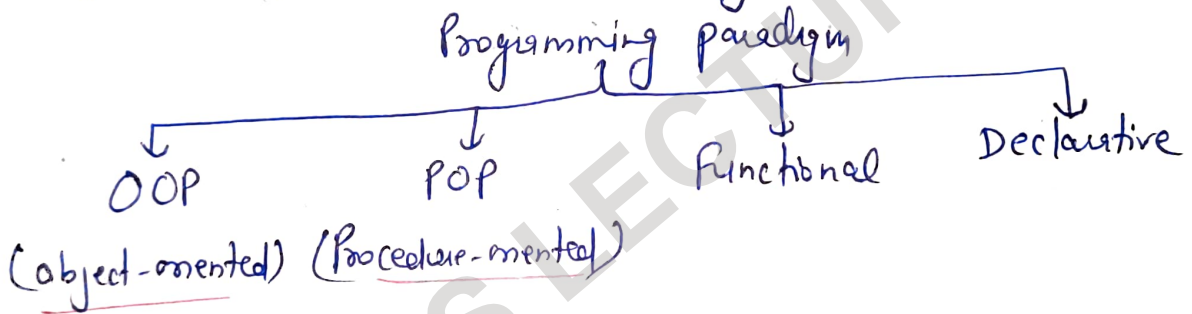 Programming paradigm
OOP POP Functional Declarative
(object-oriented) (Procedure-oriented)
S LECTU